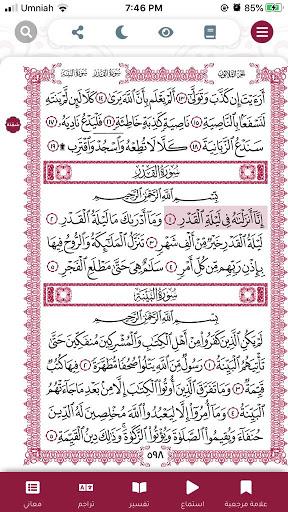 Umniah
7:46 PM
85%
الجزء الثلاثون
سورة القدر
سورة البينة
أَرَءَيْتَ إِن كَذَّبَ وَتَوَلَّىٰ ١٣ أَلَمْ يَعْلَم بِأَنَّ ٱللَّهَ يَرَىٰ ١٤ كَلَّا لَئِن لَّمْ يَنتَهِ
لَنَسْفَعًۢا بِٱلنَّاصِيَةِ ١٥ نَاصِيَةٍ كَٰذِبَةٍ خَاطِئَةٍ ١٦ فَلْيَدْعُ نَادِيَهُۥ ١٧
سَنَدْعُ ٱلزَّبَانِيَةَ ١٨ كَلَّا لَا تُطِعْهُ وَٱسْجُدْ وَٱقْتَرِب ۩ ١٩
سُورَةُ القَدْرِ
بِسْمِ ٱللَّهِ ٱلرَّحْمَٰنِ ٱلرَّحِيمِ
إِنَّآ أَنزَلْنَٰهُ فِى لَيْلَةِ ٱلْقَدْرِ ١ وَمَآ أَدْرَىٰكَ مَا لَيْلَةُ ٱلْقَدْرِ ٢
لَيْلَةُ ٱلْقَدْرِ خَيْرٌ مِّنْ أَلْفِ شَهْرٍ ٣ تَنَزَّلُ ٱلْمَلَٰٓئِكَةُ وَٱلرُّوحُ فِيهَا
بِإِذْنِ رَبِّهِم مِّن كُلِّ أَمْرٍ ٤ سَلَٰمٌ هِىَ حَتَّىٰ مَطْلَعِ ٱلْفَجْرِ ٥
سُورَةُ البَيِّنَةِ
بِسْمِ ٱللَّهِ ٱلرَّحْمَٰنِ ٱلرَّحِيمِ
لَمْ يَكُنِ ٱلَّذِينَ كَفَرُوا۟ مِنْ أَهْلِ ٱلْكِتَٰبِ وَٱلْمُشْرِكِينَ مُنفَكِّينَ حَتَّىٰ
تَأْتِيَهُمُ ٱلْبَيِّنَةُ ١ رَسُولٌ مِّنَ ٱللَّهِ يَتْلُوا۟ صُحُفًا مُّطَهَّرَةً ٢ فِيهَا كُتُبٌ
قَيِّمَةٌ ٣ وَمَا تَفَرَّقَ ٱلَّذِينَ أُوتُوا۟ ٱلْكِتَٰبَ إِلَّا مِنۢ بَعْدِ مَا جَآءَتْهُمُ
ٱلْبَيِّنَةُ ٤ وَمَآ أُمِرُوٓا۟ إِلَّا لِيَعْبُدُوا۟ ٱللَّهَ مُخْلِصِينَ لَهُ ٱلدِّينَ
حُنَفَآءَ وَيُقِيمُوا۟ ٱلصَّلَوٰةَ وَيُؤْتُوا۟ ٱلزَّكَوٰةَ وَذَٰلِكَ دِينُ ٱلْقَيِّمَةِ ٥
٥٩٨
علامة مرجعية
استماع
تفسير
تراجم
معاني